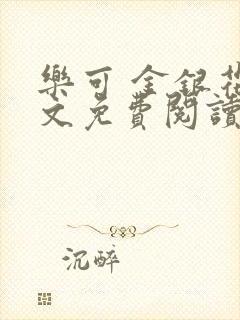 樂可 金銀花
文免費閱讀
沉醉